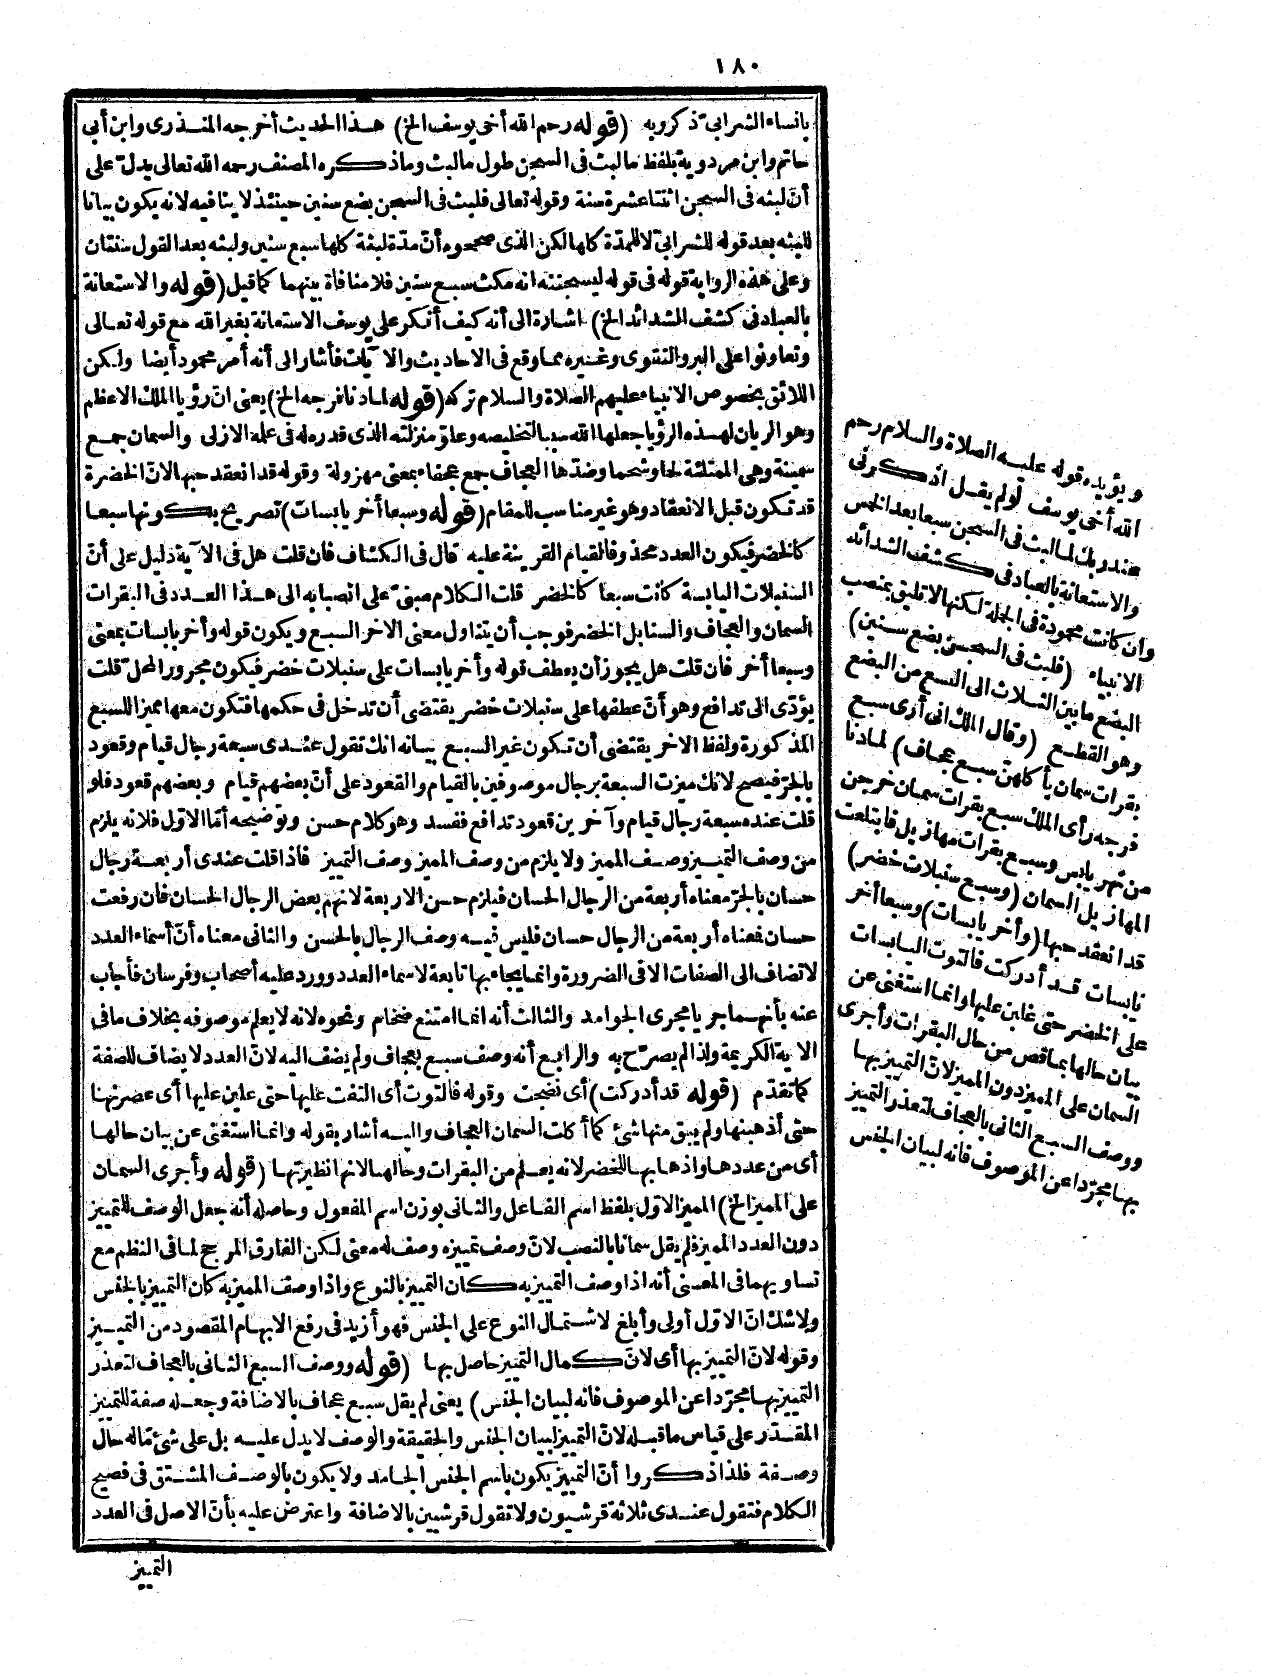 ١٨٠
بانساء الشرابيّ ذكر ربه (قوله رحم الله أخى يوسف الخ) هذا الحديث أخرجه المنذرى وابن أبى
حاتم وابن مردوية بلفظ ما لبث فى السجن طول ما لبث وما ذكره المصنف رحمه الله تعالى يدلّ على
أنّ لبثه فى السجن اثنتا عشرة سنة وقوله تعالى فلبث فى السجن بضع سنين حينئذ لا ينافيه لانه يكون بيانا
للبثه بعد قوله للشرابىّ لا للمدّة كلها لكن الذى صححوه أنّ مدّة لبثه كلها سبع سنين ولبثه بعد القول سنتان
وعلى هذه الرواية قوله فى قوله ليسجننه انه مكث سبع سنين فلا منافاة بينهما كما قيل (قوله والاستعانة
بالعباد فى كشف الشدائد الخ) اشارة الى أنه كيف أنكر على يوسف الاستعانة بغير الله مع قوله تعالى
وتعاونوا على البر والتقوى وغيره مما وقع فى الاحاديث والآيات فأشار الى أنه أمر محمود أيضا ولكن
اللائق بخصوص الانبياء عليهم الصلاة والسلام تركه (قوله لما دنا فرجه الخ) يعنى انّ رؤيا الملك الاعظم
وهو الريان لهذه الرؤيا جعلها الله سببا لتخليصه وعلوّ منزلته الذى قدر له فى علمه الازلى والسمان جمع
سمينة وهى الممتلئة لحما وشحما وضدّها العجاف جمع عجفاء بمعنى مهزولة وقوله قد انعقد حبها لانّ الخضرة
قد تكون قبل الانعقاد وهو غير مناسب للمقام (قوله وسبعا أخر يابسات) تصريح بكونها سبعا
كالخضر فيكون العدد محذوفا لقيام القرينة عليه قال فى الكشاف فان قلت هل فى الآية دليل على أنّ
السنبلات اليابسة كانت سبعا كالخضر قلت الكلام مبنىّ على انصبابه الى هذا العدد فى البقرات
السمان والعجاف والسنابل الخضر فوجب أن يتناول معنى الاخر السبع ويكون قوله وأخر يابسات بمعنى
وسبعا أخر فان قلت هل يجوز أن يعطف قوله وأخر يابسات على سنبلات خضر فيكون مجرور المحلّ قلت
يؤدّى الى تدافع وهو أنّ عطفها على سنبلات خضر يقتضى أن تدخل فى حكمها فتكون معها مميزا للسبع
المذكورة ولفظ الاخر يقتضى أن تكون غير السبع بيانه انك تقول عندى سبعة رجال قيام وقعود
بالجرّ فيصح لانك ميزت السبعة برجال موصوفين بالقيام والقعود على أنّ بعضهم قيام وبعضهم قعود فلو
قلت عنده سبعة رجال قيام وآخرين قعود تدافع ففسد وهو كلام حسن وتوضيحه أمّا الاوّل فلانه يلزم
من وصف التمييز وصف المميز ولا يلزم من وصف المميز وصف التمييز فاذا قلت عندى أربعة رجال
حسان بالجرّ معناه أربعة من الرجال الحسان فيلزم حسن الاربعة لانهم بعض الرجال الحسان فان رفعت
حسان فمعناه أربعة من الرجال حسان فليس فيه وصف الرجال بالحسن والثانى معناه أنّ أسماء العدد
لا تضاف الى الصفات الا فى الضرورة وانما يجاء بها تابعة لاسماء العدد وورد عليه أصحاب وفرسان فأجاب
عنه بأنهما جريا مجرى الجوامد والثالث أنه انما امتنع ضخام ونحوه لانه لا يعلم موصوفه بخلاف ما فى
الآية الكريمة ولذا لم يصرّح به والرابع أنه وصف سبع بعجاف ولم يضف اليه لانّ العدد لا يضاف للصفة
كما تقدّم (قوله قد أدركت) أى نضجت وقوله فالتوت أى التفت عليها حتى علين عليها أى عصرتها
حتى أذهبنها ولم يبق منها شئ كما أكلت السمان العجاف واليه أشار بقوله وانما استغنى عن بيان حالها
أى من عددها واذهابها للخضر لانه يعلم من البقرات وحالها لانها نظيرتها (قوله وأجرى السمان
على المميز الخ) المميز الاوّل بلفظ اسم الفاعل والثانى بوزن اسم المفعول وحاصله أنه جعل الوصف للتمييز
دون العدد المميز فلم يقل سمانا بالنصب لانّ وصف تمييزه وصف له معنى لكن الفارق المرجح لما فى النظم مع
تساويهما فى المعنى أنه اذا وصف التمييز به كان التمييز بالنوع واذا وصف المميز به كان التمييز بالجنس
ولا شك انّ الاوّل أولى وأبلغ لاشتمال النوع على الجنس فهو أزيد فى رفع الابهام المقصود من التمييز
وقوله لانّ التمييز بها أى لانّ كمال التمييز حاصل بها (قوله ووصف السبع الثانى بالعجاف لتعذر
التمييز بها مجرّدا عن الموصوف فانه لبيان الجنس) يعنى لم يقل سبع عجاف بالاضافة وجعله صفة للتمييز
المقدّر على قياس ما قبله لانّ التمييز لبيان الجنس والحقيقة والوصف لا يدل عليه بل على شئ مّا له حال
وصفة فلذا ذكروا أنّ التمييز يكون باسم الجنس الجامد ولا يكون بالوصف المشتق فى فصيح
الكلام فتقول عندى ثلاثة قرشيون ولا تقول قرشيين بالاضافة واعترض عليه بأنّ الاصل فى العدد
التمييز
ويؤيده قوله عليه الصلاة والسلام رحم
الله أخى يوسف لو لم يقل اذكرنى
عند ربك لما لبث فى السجن سبعا بعد الخمس
والاستعانة بالعباد فى كشف الشدائد
وان كانت محمودة فى الجملة لكنها لا تليق بمنصب
الانبياء (فلبث فى السجن بضع سنين)
البضع ما بين الثلاث الى التسع من البضع
وهو القطع (وقال الملك انى أرى سبع
بقرات سمان يأكلهنّ سبع عجاف) لما دنا
فرجه رأى الملك سبع بقرات سمان خرجن
من نهر يابس وسبع بقرات مهازيل فابتلعت
المهازيل السمان (وسبع سنبلات خضر)
قد انعقد حبها (وأخر يابسات) وسبعا أخر
يابسات قد أدركت فالتوت اليابسات
على الخضر حتى غلبن عليها وانما استغنى عن
بيان حالها بما قص من حال البقرات وأجرى
السمان على المميز دون المميز لانّ التمييز بها
ووصف السبع الثانى بالعجاف لتعذر التمييز
بها مجرّدا عن الموصوف فانه لبيان الجنس